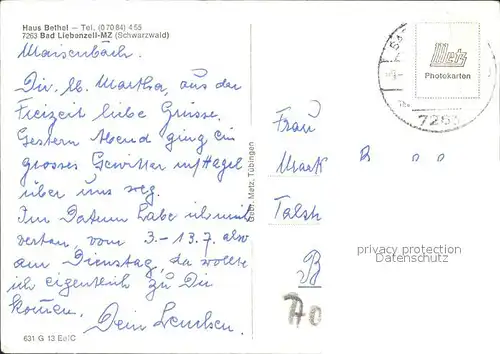 Haus Bethel – Tel. (0 70 84) 4 55
7263 Bad Liebenzell-MZ (Schwarzwald)
Maisenbach.
Dir lb. Martha, aus der
Freizeit liebe Grüsse.
Gestern Abend ging ein
grosses Gewitter m/Hagel
über uns weg.
Im Datum habe ich mich
vertan, vom 3.-13.7. also
am Dienstag, da wollte
ich eigentlich zu Dir
kommen.
Dein
631 G 13 Ed/C
Gebr. Metz, Tübingen
Metz
Photokarten
726
Frau
B
privacy protection
Datenschutz